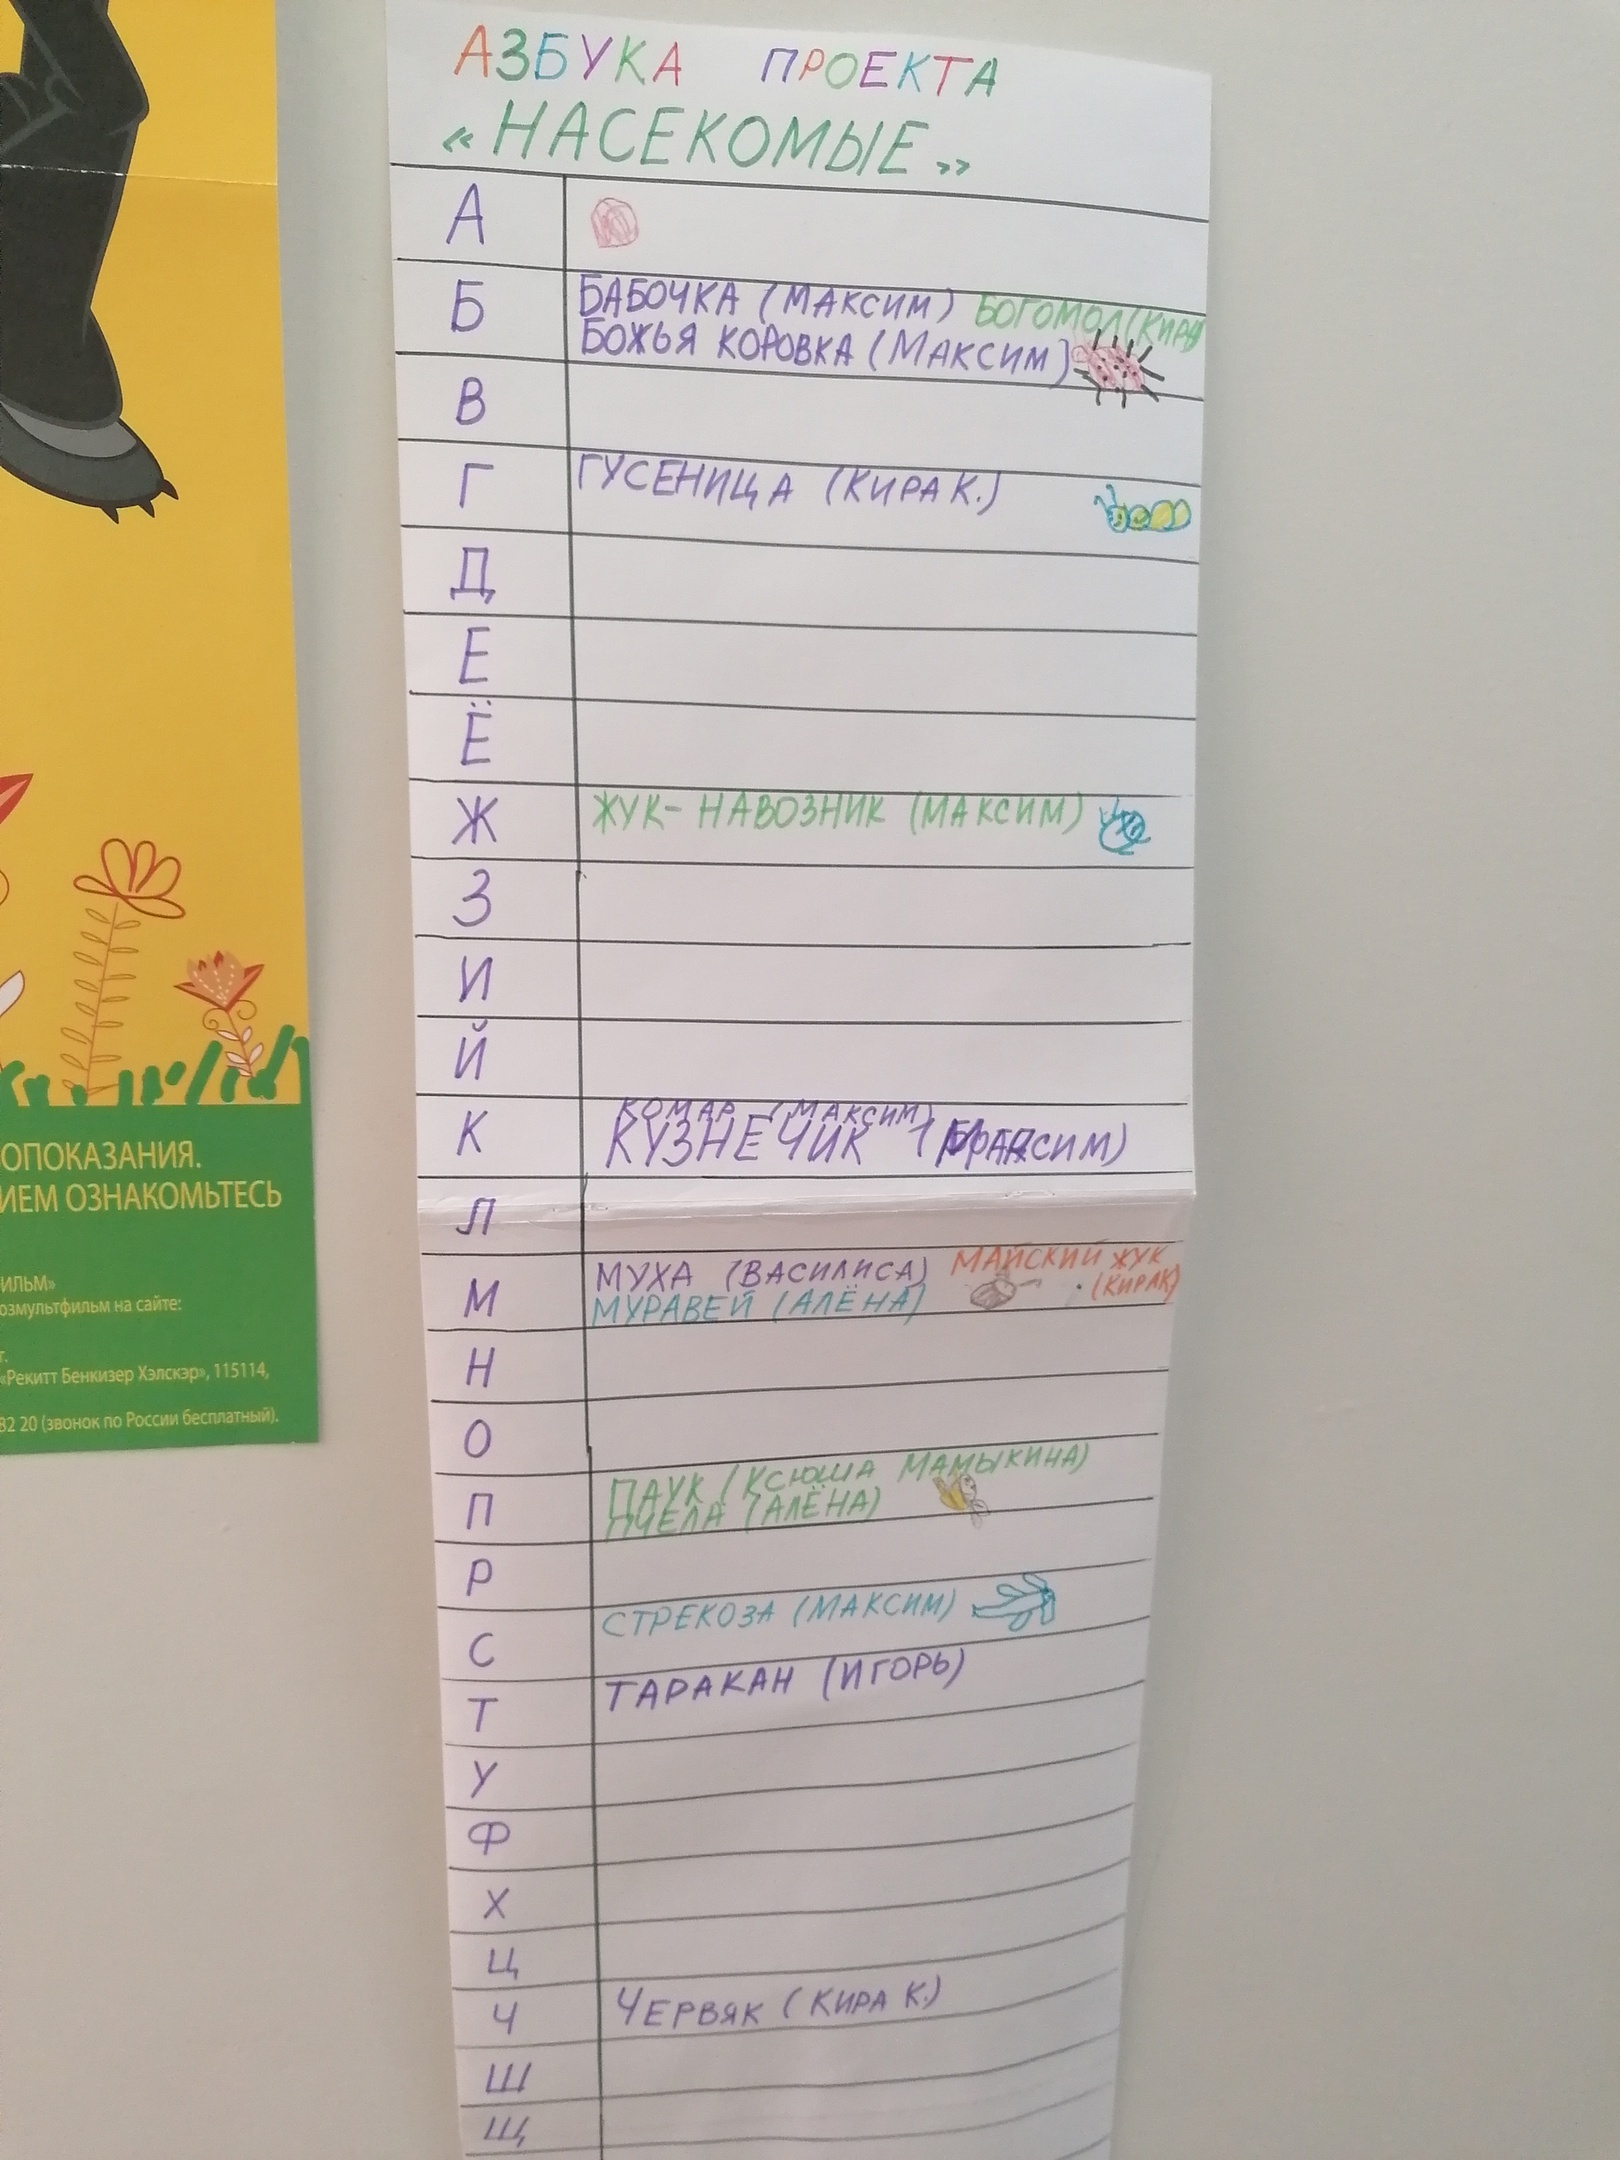 АЗБУКА ПРОЕКТА
«НАСЕКОМЫЕ»
А
Б
БАБОЧКА (МАКСИМ) БОГОМОЛ (КИРА)
БОЖЬЯ КОРОВКА (МАКСИМ)
В
Г ГУСЕНИЦА (КИРА К.)
Д
Е
Ё
Ж ЖУК-НАВОЗНИК (МАКСИМ)
З
И
Й
К
КОМАР (МАКСИМ)
КУЗНЕЧИК
Л
М
МУХА (ВАСИЛИСА) МАЙСКИЙ ЖУК
МУРАВЕЙ (АЛЁНА) (КИРА К)
Н
О
П
ПАУК (КСЮША МАМЫКИНА)
ПЧЕЛА (АЛЁНА)
Р
С СТРЕКОЗА (МАКСИМ)
Т ТАРАКАН (ИГОРЬ)
У
Ф
Х
Ц
Ч ЧЕРВЯК (КИРА К.)
Ш
Щ
ОПОКАЗАНИЯ.
ИЕМ ОЗНАКОМЬТЕСЬ
ИЛЬМ»
озмультфильм на сайте:
г.
«Рекитт Бенкизер Хэлскэр», 115114,
82 20 (звонок по России бесплатный).